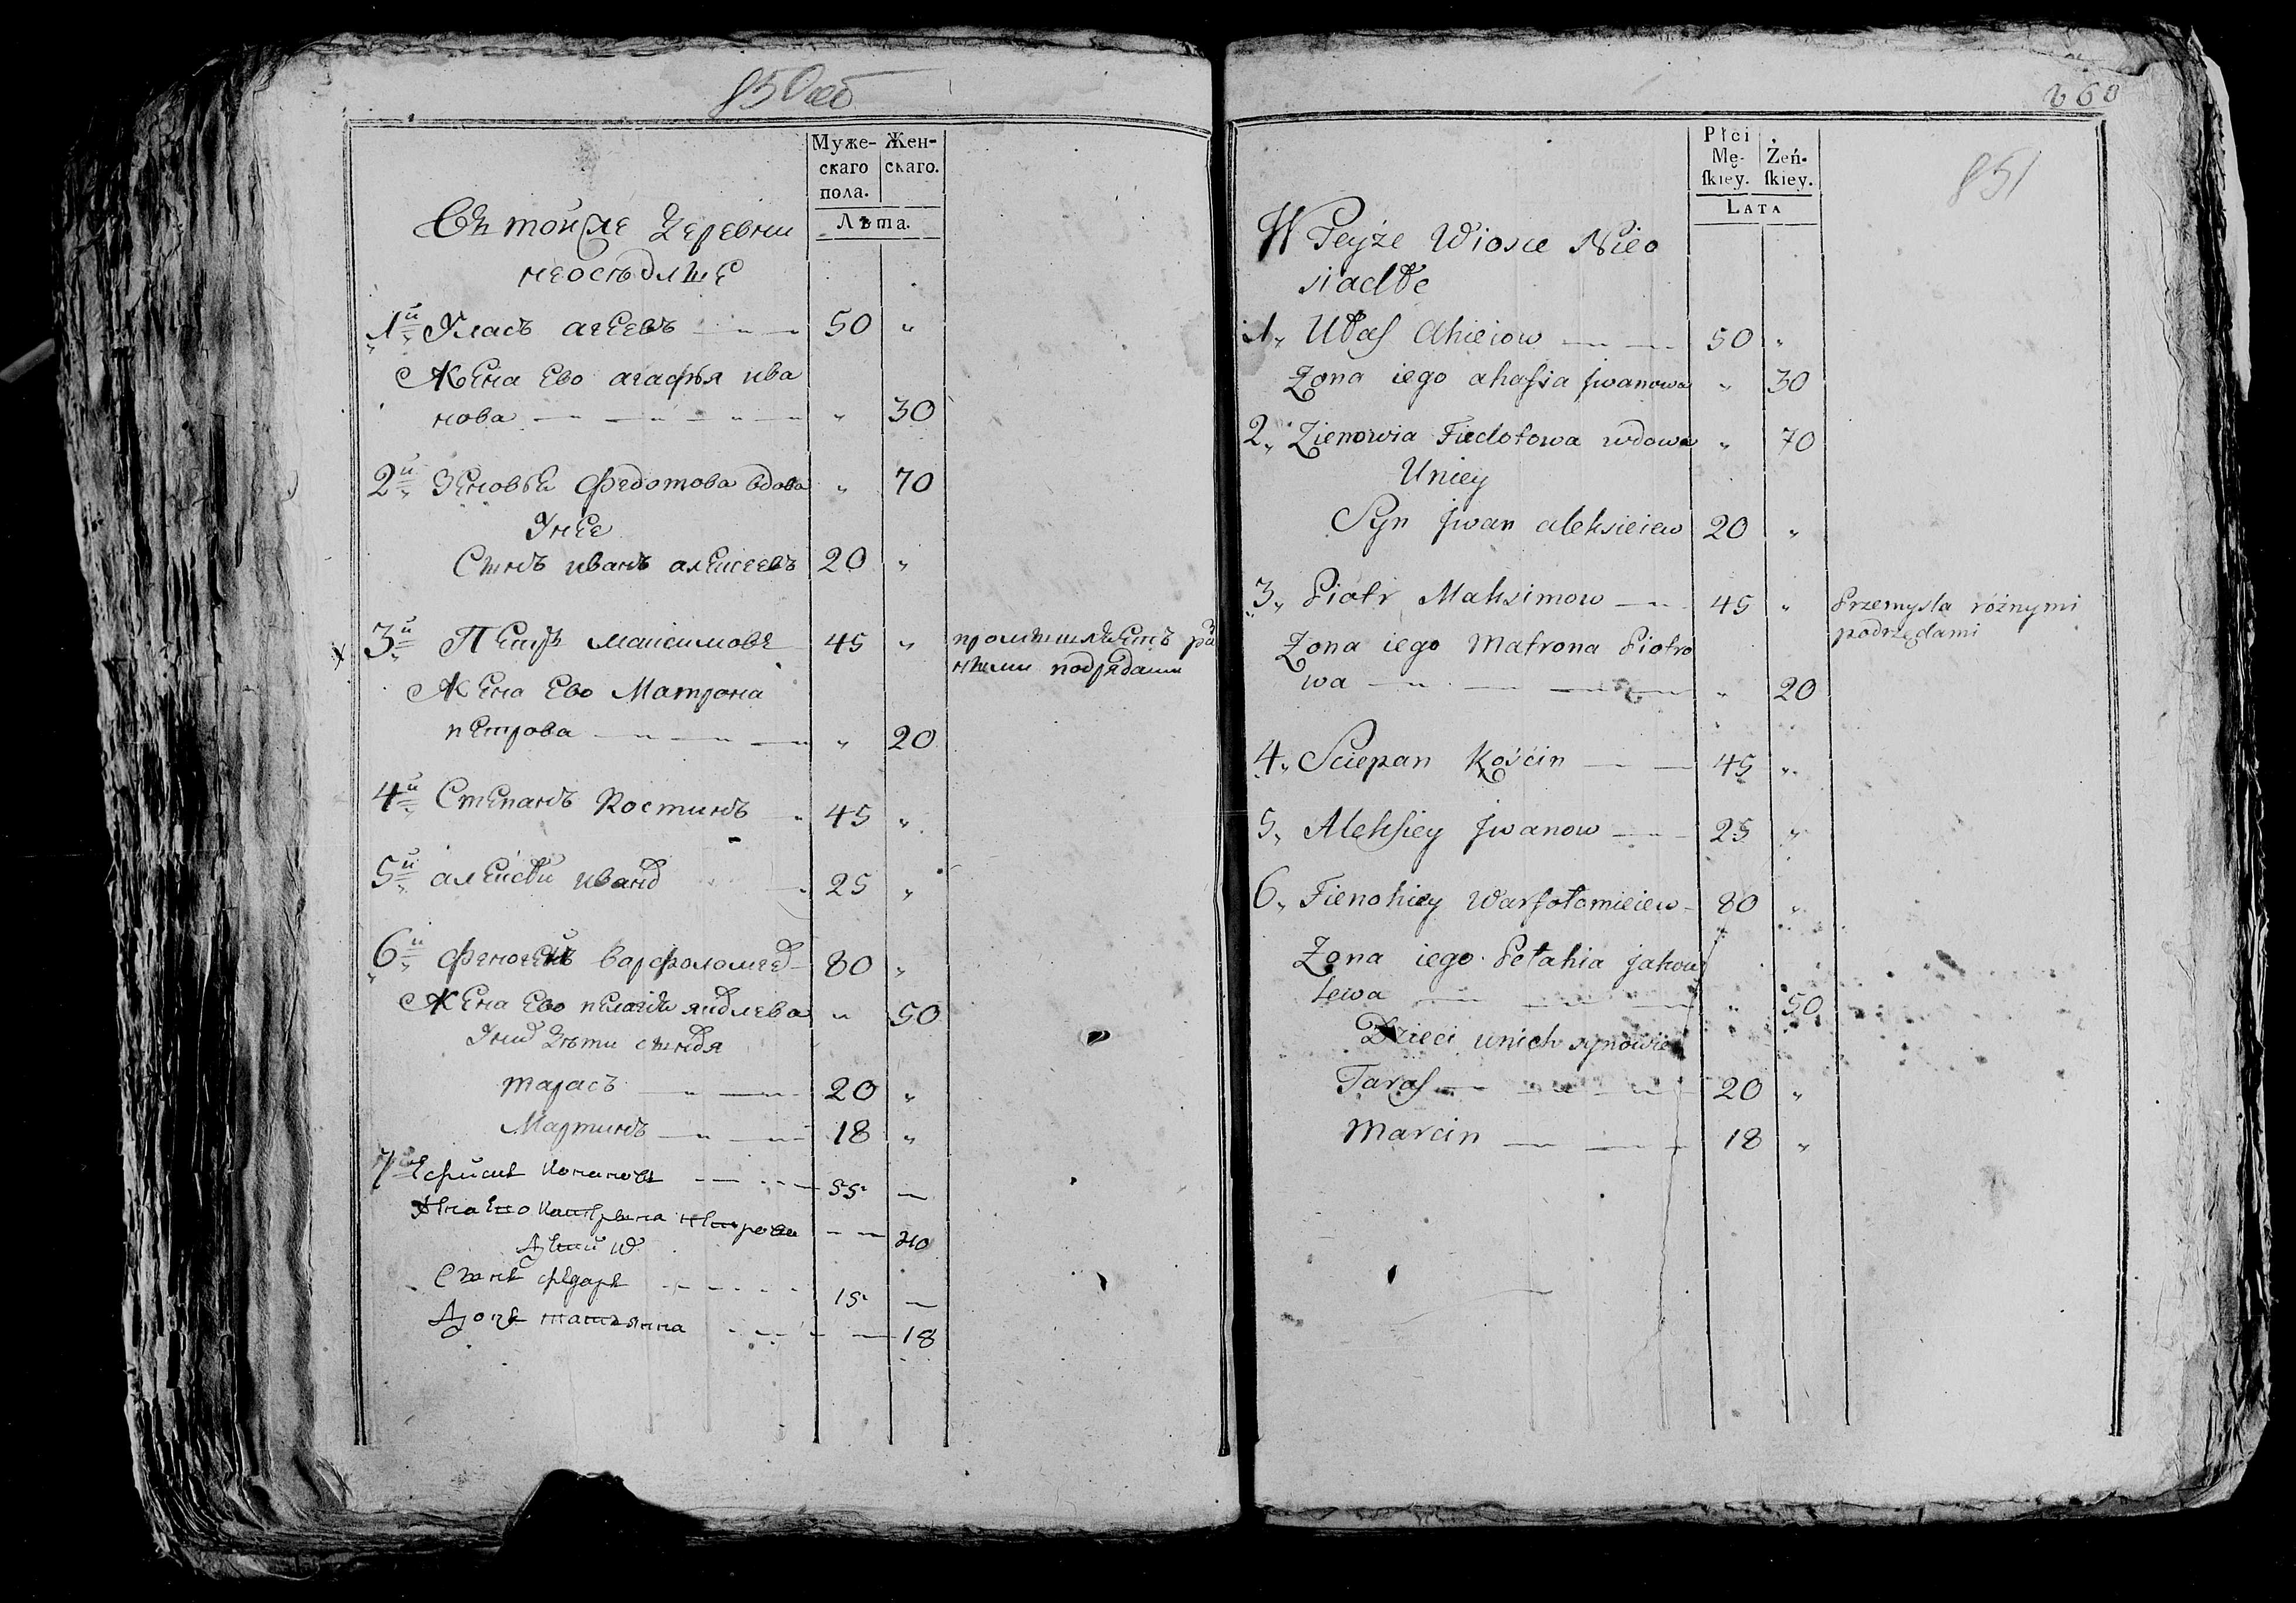 850 об
Муже- Жен-
скаго скаго.
пола.
Лѣта.
Въ той же Деревни
неосѣдлые
1й Улась агеевъ 50 „
Жена Ево агафья ива
нова „ 30
2й Зеновья Федотова вдова „ 70
У нее
Сынъ иванъ алексеевъ 20 „
3й Петръ максимовъ 45 „ промышляетъ раз
ными подрядами
Жена Ево Матрона
петрова „ 20
4й Степанъ Костинъ 45 „
5й алексей иванов 25 „
6й феногенъ варфоломеев 80 „
Жена Ево пелагия яковлева „ 50
У них дети сыновья
тарасъ 20 „
Мартинъ 18 „
7й Ефимъ Кононовъ 55 —
Жена Ево Катерина петрова — 40
Дети их
Сынъ федаръ 15 —
Дочь татьянна — 18
260
851
Płci
Mę- Żeń-
ſkiey. ſkiey.
LATA
W Teyże Wiosce Nieo
siadłe
1„ Ułaſ Ahieiow 50 „
Zona iego ahafia Jwanowa „ 30
2„ Zienowia Fiedotowa wdowa „ 70
Uniey
Syn Jwan aleksieiew 20 „
3„ Piotr Maksimow 45 „ Przemysla różnymi
podrzędami
Zona iego Matrona Piotro
wa „ 20
4„ Sciepan Kośćin 45 „
5„ Alekſiey Jwanow 25 „
6„ Fienohiey Warfołomieiew 80 „
Zona iego Pełahia jakow
lewa „ 50
Dzieci unich synowie
Taraſ 20 „
Marcin 18 „